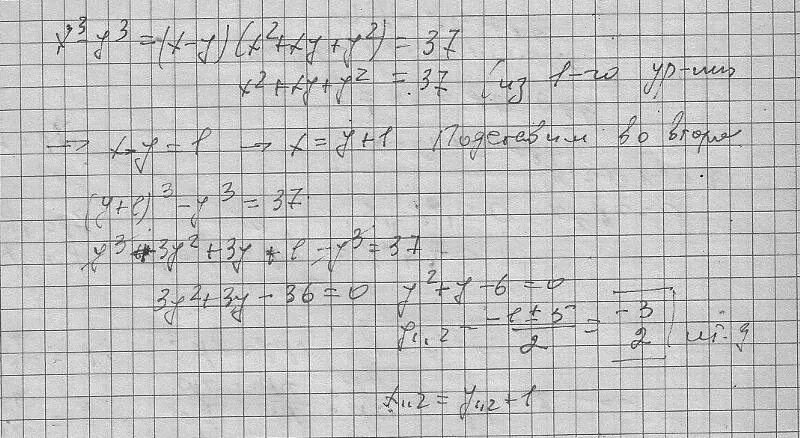 x³ - y³ = (x-y)(x²+xy+y²) = 37
x²+xy+y² = 37 (из 1-го ур-ния
→ x-y=1 → x=y+1 Подставим во второе
(y+1)³ - y³ = 37
y³+3y²+3y+1-y³=37
3y²+3y-36=0 y²+y-6=0
y₁,₂ = (-1±5)/2 = [-3 2] и т.д
x₁,₂ = y₁,₂+1